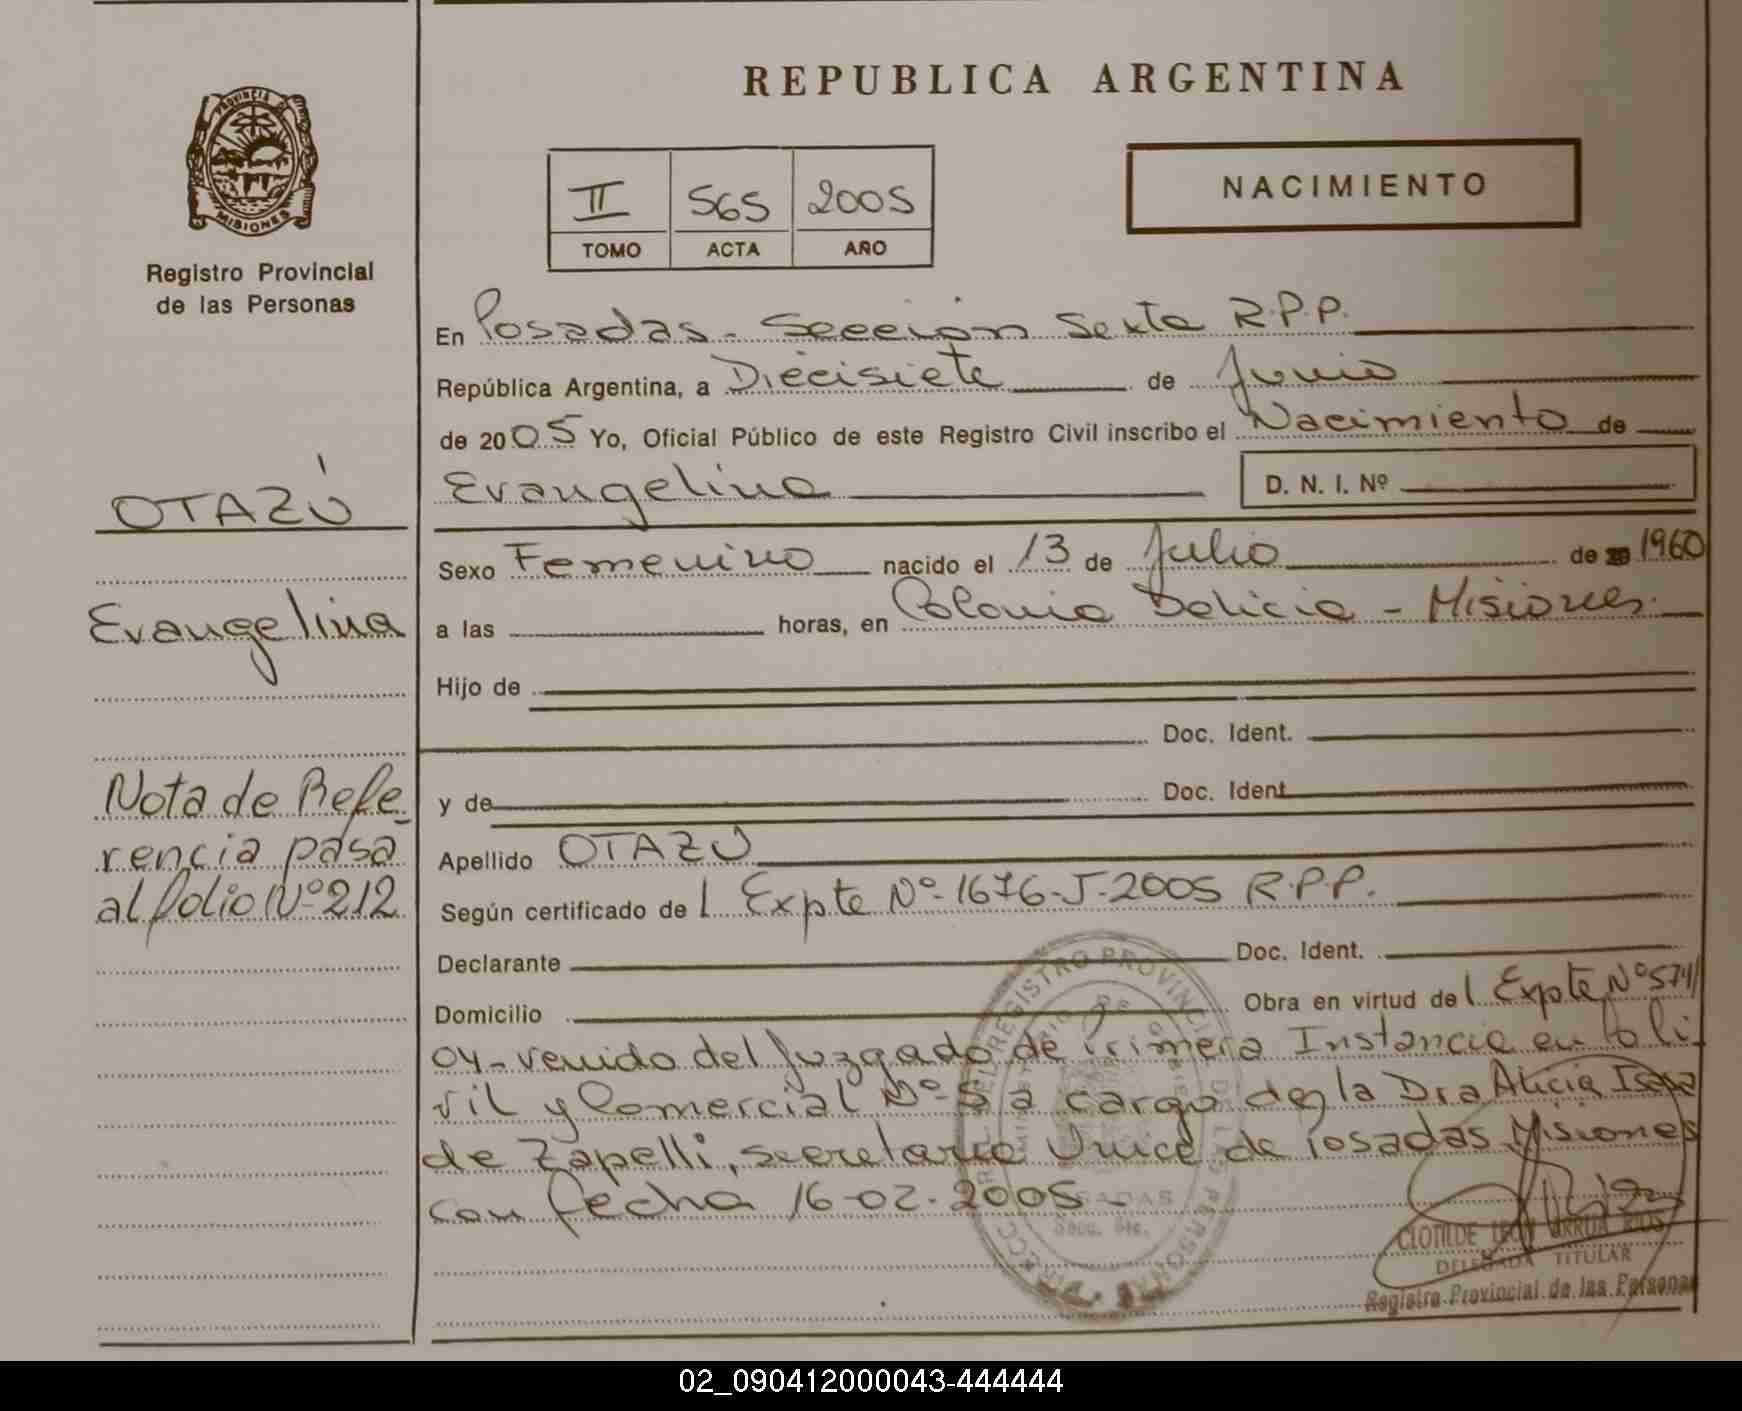 REPUBLICA ARGENTINA
PROVINCIA DE
MISIONES
Registro Provincial
de las Personas
II 565 2005
TOMO ACTA AÑO
NACIMIENTO
En Posadas - Sección Sexta R.P.P.
República Argentina, a Diecisiete de Junio
de 2005 Yo, Oficial Público de este Registro Civil inscribo el Nacimiento de
Evangelina D. N. I. Nº
OTAZÚ
Sexo Femenino nacido el 13 de Julio de 1960
Evangelina
a las horas, en Colonia Delicia - Misiones.
Hijo de
Doc. Ident.
y de Doc. Ident
Nota de Refe-
rencia pasa
al folio Nº 212
Apellido OTAZÚ
Según certificado de Expte Nº 1676-J-2005 R.P.P.
Declarante Doc. Ident.
Domicilio Obra en virtud de Expte Nº 574/
04- venido del Juzgado de Primera Instancia en lo Ci-
vil y Comercial Nº 5 a cargo de la Dra Alicia
de Zapelli, secretaria Unica de Posadas Misiones
con fecha 16-02-2005 -
REGISTRO PROVINCIAL DE LAS PERSONAS
POSADAS
CLOTILDE LEON ARRUA RIOS
DELEGADA TITULAR
Registro Provincial de las Personas
02_090412000043-444444